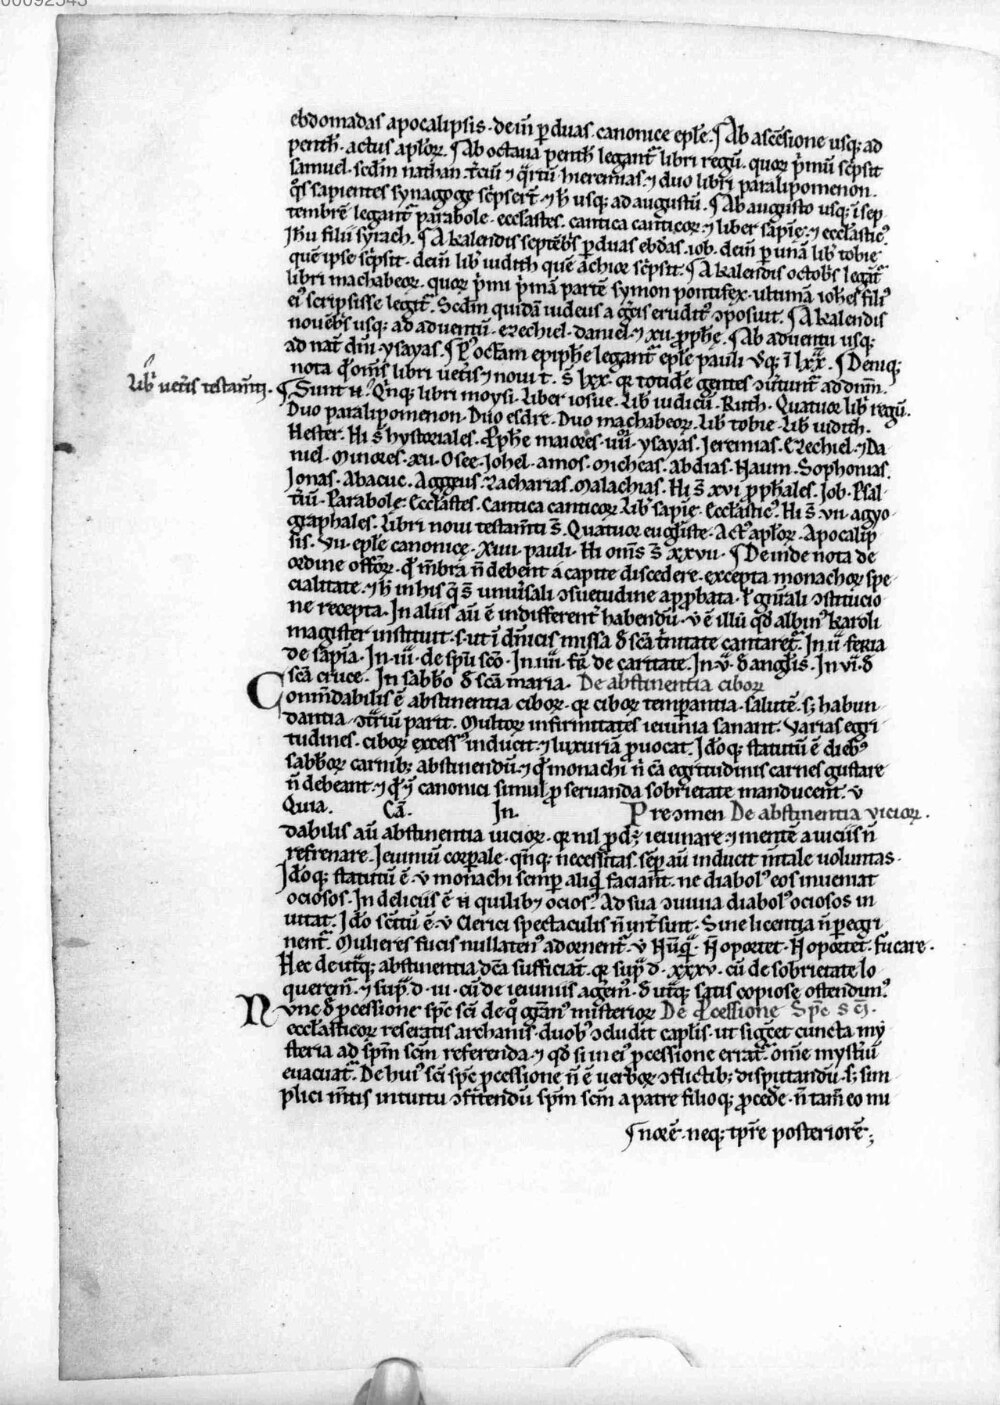 00092343
ebdomadas apocalipsis · dein̄ ꝑ duas canonice epłe. ¶ Ab ascēsione usq; ad
pentħ · actus apłoꝝ. ¶ Ab octaua pentħ legant᷑ libri regū · quoꝝ p̄mū sc̄psit
samuel · scđm nathan · t̄ciū ⁊ q̄rtū hieremias · ⁊ duo libri paralipomenon ·
q̊s sapientes synagoge sc̄pser̄t · ⁊ ħ usq; ad augustū. ¶ Ab augusto usq; ī sep
tembrē legant᷑ parabole · eccłastes · cantica canticoꝝ · ⁊ liber sapīe · ⁊ eccłastic᷒
Jħu filii syrach. ¶ A kalendis septēb̄s ꝑ duas ebđas · iob · dein̄ ꝑ unā lib᷑ tobie
quē ipse sc̄psit · dein̄ lib᷑ iudith quē āchior sc̄psit. ¶ A kalendis octob̄s legāt᷑
libri machabeoꝝ · quoꝝ p̄mi p̄mā partē symon pontifex · ultimā ioħes fili᷒
ei᷒ scripsisse legit᷑. Scđm quidā iudeus a ḡcis erudit᷒ ↄposuit. ¶ A kalendis
nouēb̄s usq; ad aduentū · ezechiel · daniel · ⁊ xii ꝓpħe. ¶ Ab aduentu usq;
ad nat̄ dn̄i · ysayas. ¶ P᷒ octam epipħe legant᷑ epłe pauli vsq; ī lxx · ¶ Deniq;
nota q̄ om̄s libri uet̄is ⁊ noui t. s̄ lxx · qꝛ totidē gentes ↄuertunt᷑ ad dn̄m.
lib᷑ uet̄is testam̄ti.
¶ Sunt ū Q̄nq; libri moysi · Liber iosue · Lib᷑ iudicū · Ruth · Quatuor lib᷑ regū.
Duo paralipomenon · Duo esdre · Duo machabeoꝝ · Lib᷑ tobie · Lib᷑ iudith.
Hester. Hi s̄ hystoriales. Ꝓpħe maiores · iiii · ysayas. Jeremias. Ezechiel · ⁊ Da
niel. Minores · xii · Osee. Johel. amos. Micheas. Abdias. Naum. Sophonias.
Jonas. Abacuc. Aggeus. Zacharias. Malachias. Hi s̄ xvi ꝓpħales. Job. Psal
t̄iū. Parabole. Eccłastes. Cantica canticoꝝ. Lib᷑ sapīe. Eccłastic᷒. Hi s̄ · vii · agyo
graphales. Libri noui testam̄ti s̄. Quatuor eug̃liste. Act᷒ apłoꝝ. Apocalip
sis. Vii · epłe canonice. xiiii · pauli. Hi om̄s s̄ xxvii · ¶ Deinde nota de
ordine offōꝝ · q̄ m̄bra n̄ debent a capite discedere · excepta monachoꝝ spe
cialitate · ⁊ ħ in his q̄ s̄ uniu᷑sali ↄsuetudine apꝓbata · ł gn̄ali ↄstitucio
ne recepta. In aliis aū ē indifferent᷑ habendū · v ē illū qđ albin᷒ karoli
magister instituit · s · ut ī dn̄icis missa đ scā t̄nitate cantaret᷑. In ii feria
de sapīa. In · iii · de sp̄u scō. In · iiii · fr̄a de caritate. In · v · đ angłis. In vi đ
scā cruce. In sabb̄o đ scā maria. De abstinentia ciboꝝ
Com̄dabilis ē abstinentia ciboꝝ · qꝛ ciboꝝ temperantia · salutē · s; habun
dantia ↄt̄riū parit. Multoꝝ infirmitates ieiunia sanant. Varias egri
tudines · ciboꝝ excess᷒ inducit · ⁊ luxuriā ꝓuocat. Jđoq; statutū ē dieb᷒
sabb̄oꝝ carnib; abstinendū · ⁊ q̄ monachi n̄ cā egritudinis carnes gustare
n̄ debeant · ⁊ q̄ canonici simul ꝓ seruanda sobrietate manducent. v
Quia. Cā. In. Pre ↄmen De abstinentia vicioꝝ.
dabilis aū abstinentia uicioꝝ · qꝛ nil ꝓđ; ieiunare · ⁊ mentē a uiciis n̄
refrenare. Jeiuniū corꝑale · q̄nq; necessitas. sēꝑ aū inducit m̄tale uoluntas.
Jđoq; statutū ē · v monachi semper aliq̄ faciant · ne diabol᷒ eos inueniat
ociosos. In deliciis ē n̄ quilib; ocios᷒. Ad sua ↄuiuia diabol᷒ ociosos in
uitat. Jđo sc̄itū ē · v Clerici spectaculis n̄ int̄sint. Sine licentia n̄ ꝑegri
nent᷑. Mulieres fucis nullaten᷒ adornent᷑ · v Nūq̄. N̄ oportet. N̄ oportet. fucare.
Hec de ut̄q; abstinentia dc̄a sufficiāt · qꝛ sup̄ d · xxxv · cū de sobrietate lo
querem᷑ · ⁊ sup̄ d · iii · cū de ieiuniis agem᷒ · đ ut̄q; satis copiose ostendim᷒.
Nvnc đ ꝓcessione sp̄c scī de q̊ gran᷒ misterioꝝ De ꝓcessione Sp̄c Scī.
eccłasticoꝝ reseratis archanis · duob᷒ ↄcludit capłis · ut sig̃cet cuncta my
steria ad sp̄m scm̄ referenda · ⁊ qđ si in ei᷒ ꝓcessione errat᷑ · om̄e myst̄iū
euacuat᷑. De hui᷒ scī sp̄c ꝓcessione n̄ ē uerboꝝ ↄflictib; disputandū · s; sim
plici m̄tis intuitu ↄfitendū sp̄m scm̄ a patre filioq; ꝓcede · n̄ tam̄ eo mi
¶ norē · neq; tp̄re posteriorē;